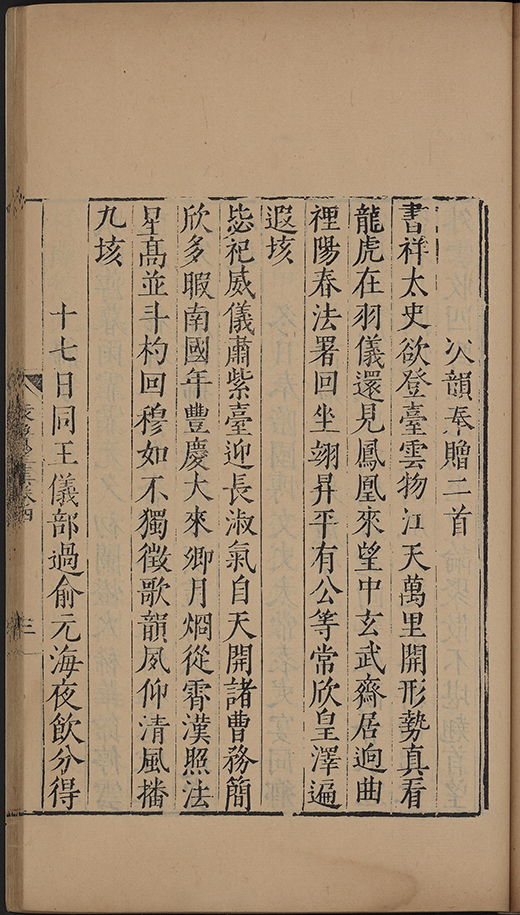 次韻奉贈二首
書祥太史欲登臺雲物江天萬里開形勢真看
龍虎在羽儀還見鳳凰來望中玄武齋居逈曲
裡陽春法署回坐翊昇平有公等常欣皇澤遍
遐垓
毖祀威儀肅紫臺迎長淑氣自天開諸曹務簡
欣多暇南國年豐慶大來卿月烱從霄漢照法
星髙並斗杓回穆如不獨徵歌韻夙仰清風播
九垓
十七日同王儀部過俞元海夜飲分得
卷四
三